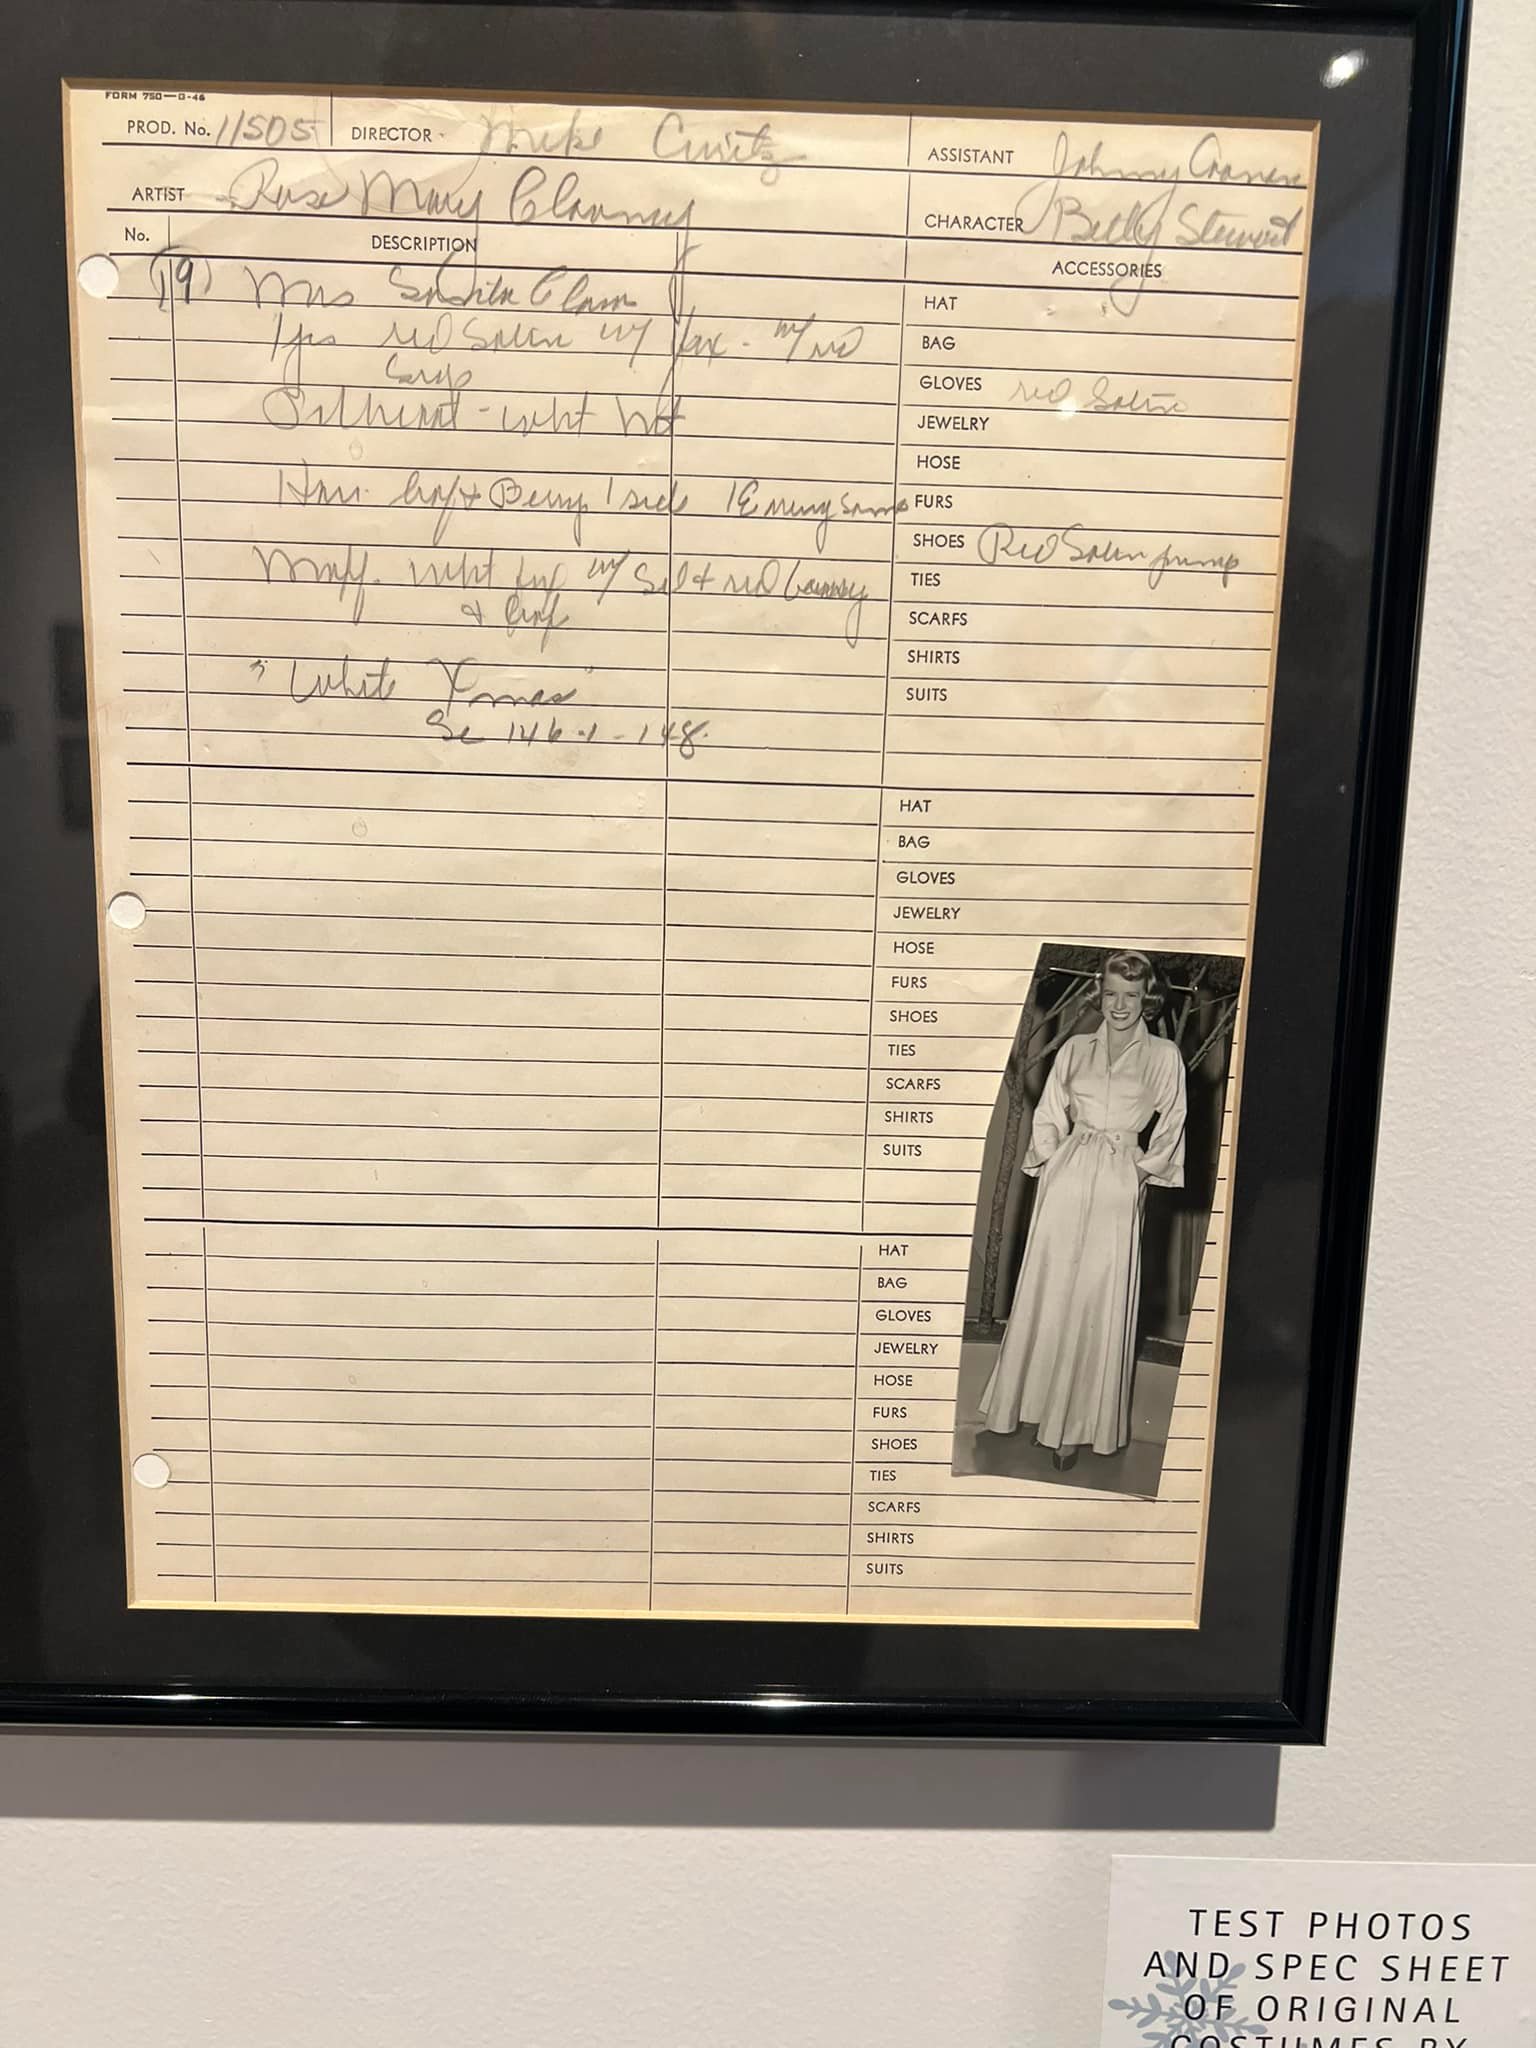 FORM 750—G-46
PROD. No. 11505 DIRECTOR Mike Curitz ASSISTANT Johnny
ARTIST Rose Mary Clooney CHARACTER Betty Stewart
No. DESCRIPTION ACCESSORIES
19 Mrs Santa Claus HAT
red Satin w/ fox - w/ red BAG
GLOVES red Satin
wht JEWELRY
HOSE
Hair. & Berry 1 side 1 FURS
SHOES Red Satin pump
Muff. wht fox w/ & red TIES
& SCARFS
SHIRTS
"White Xmas" SUITS
Sc 146-1-148.
HAT
BAG
GLOVES
JEWELRY
HOSE
FURS
SHOES
TIES
SCARFS
SHIRTS
SUITS
HAT
BAG
GLOVES
JEWELRY
HOSE
FURS
SHOES
TIES
SCARFS
SHIRTS
SUITS
TEST PHOTOS
AND SPEC SHEET
OF ORIGINAL
COSTUMES BY